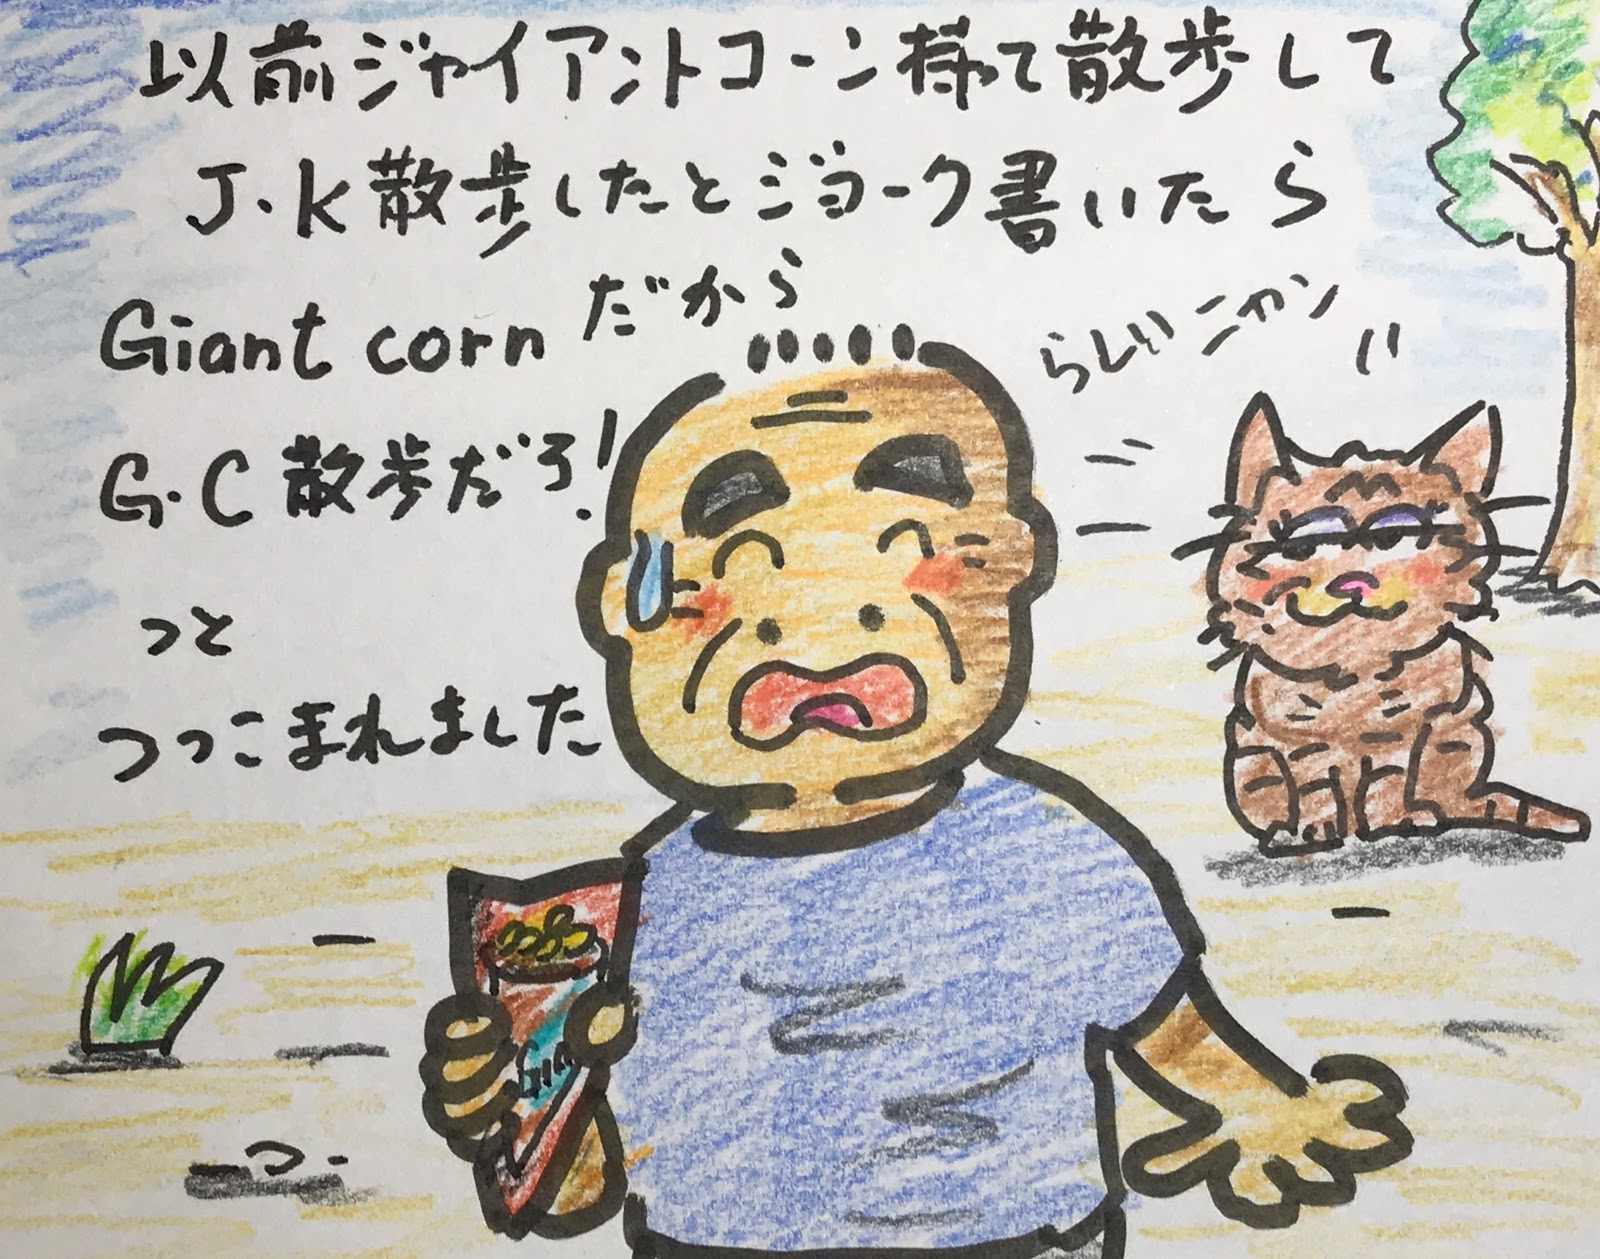 以前ジャイアントコーン持って散歩して
J・K散歩したとジョーク書いたら
Giant cornだから
G・C散歩だろ!
っと
つっこまれました
らしいニャン
Gia